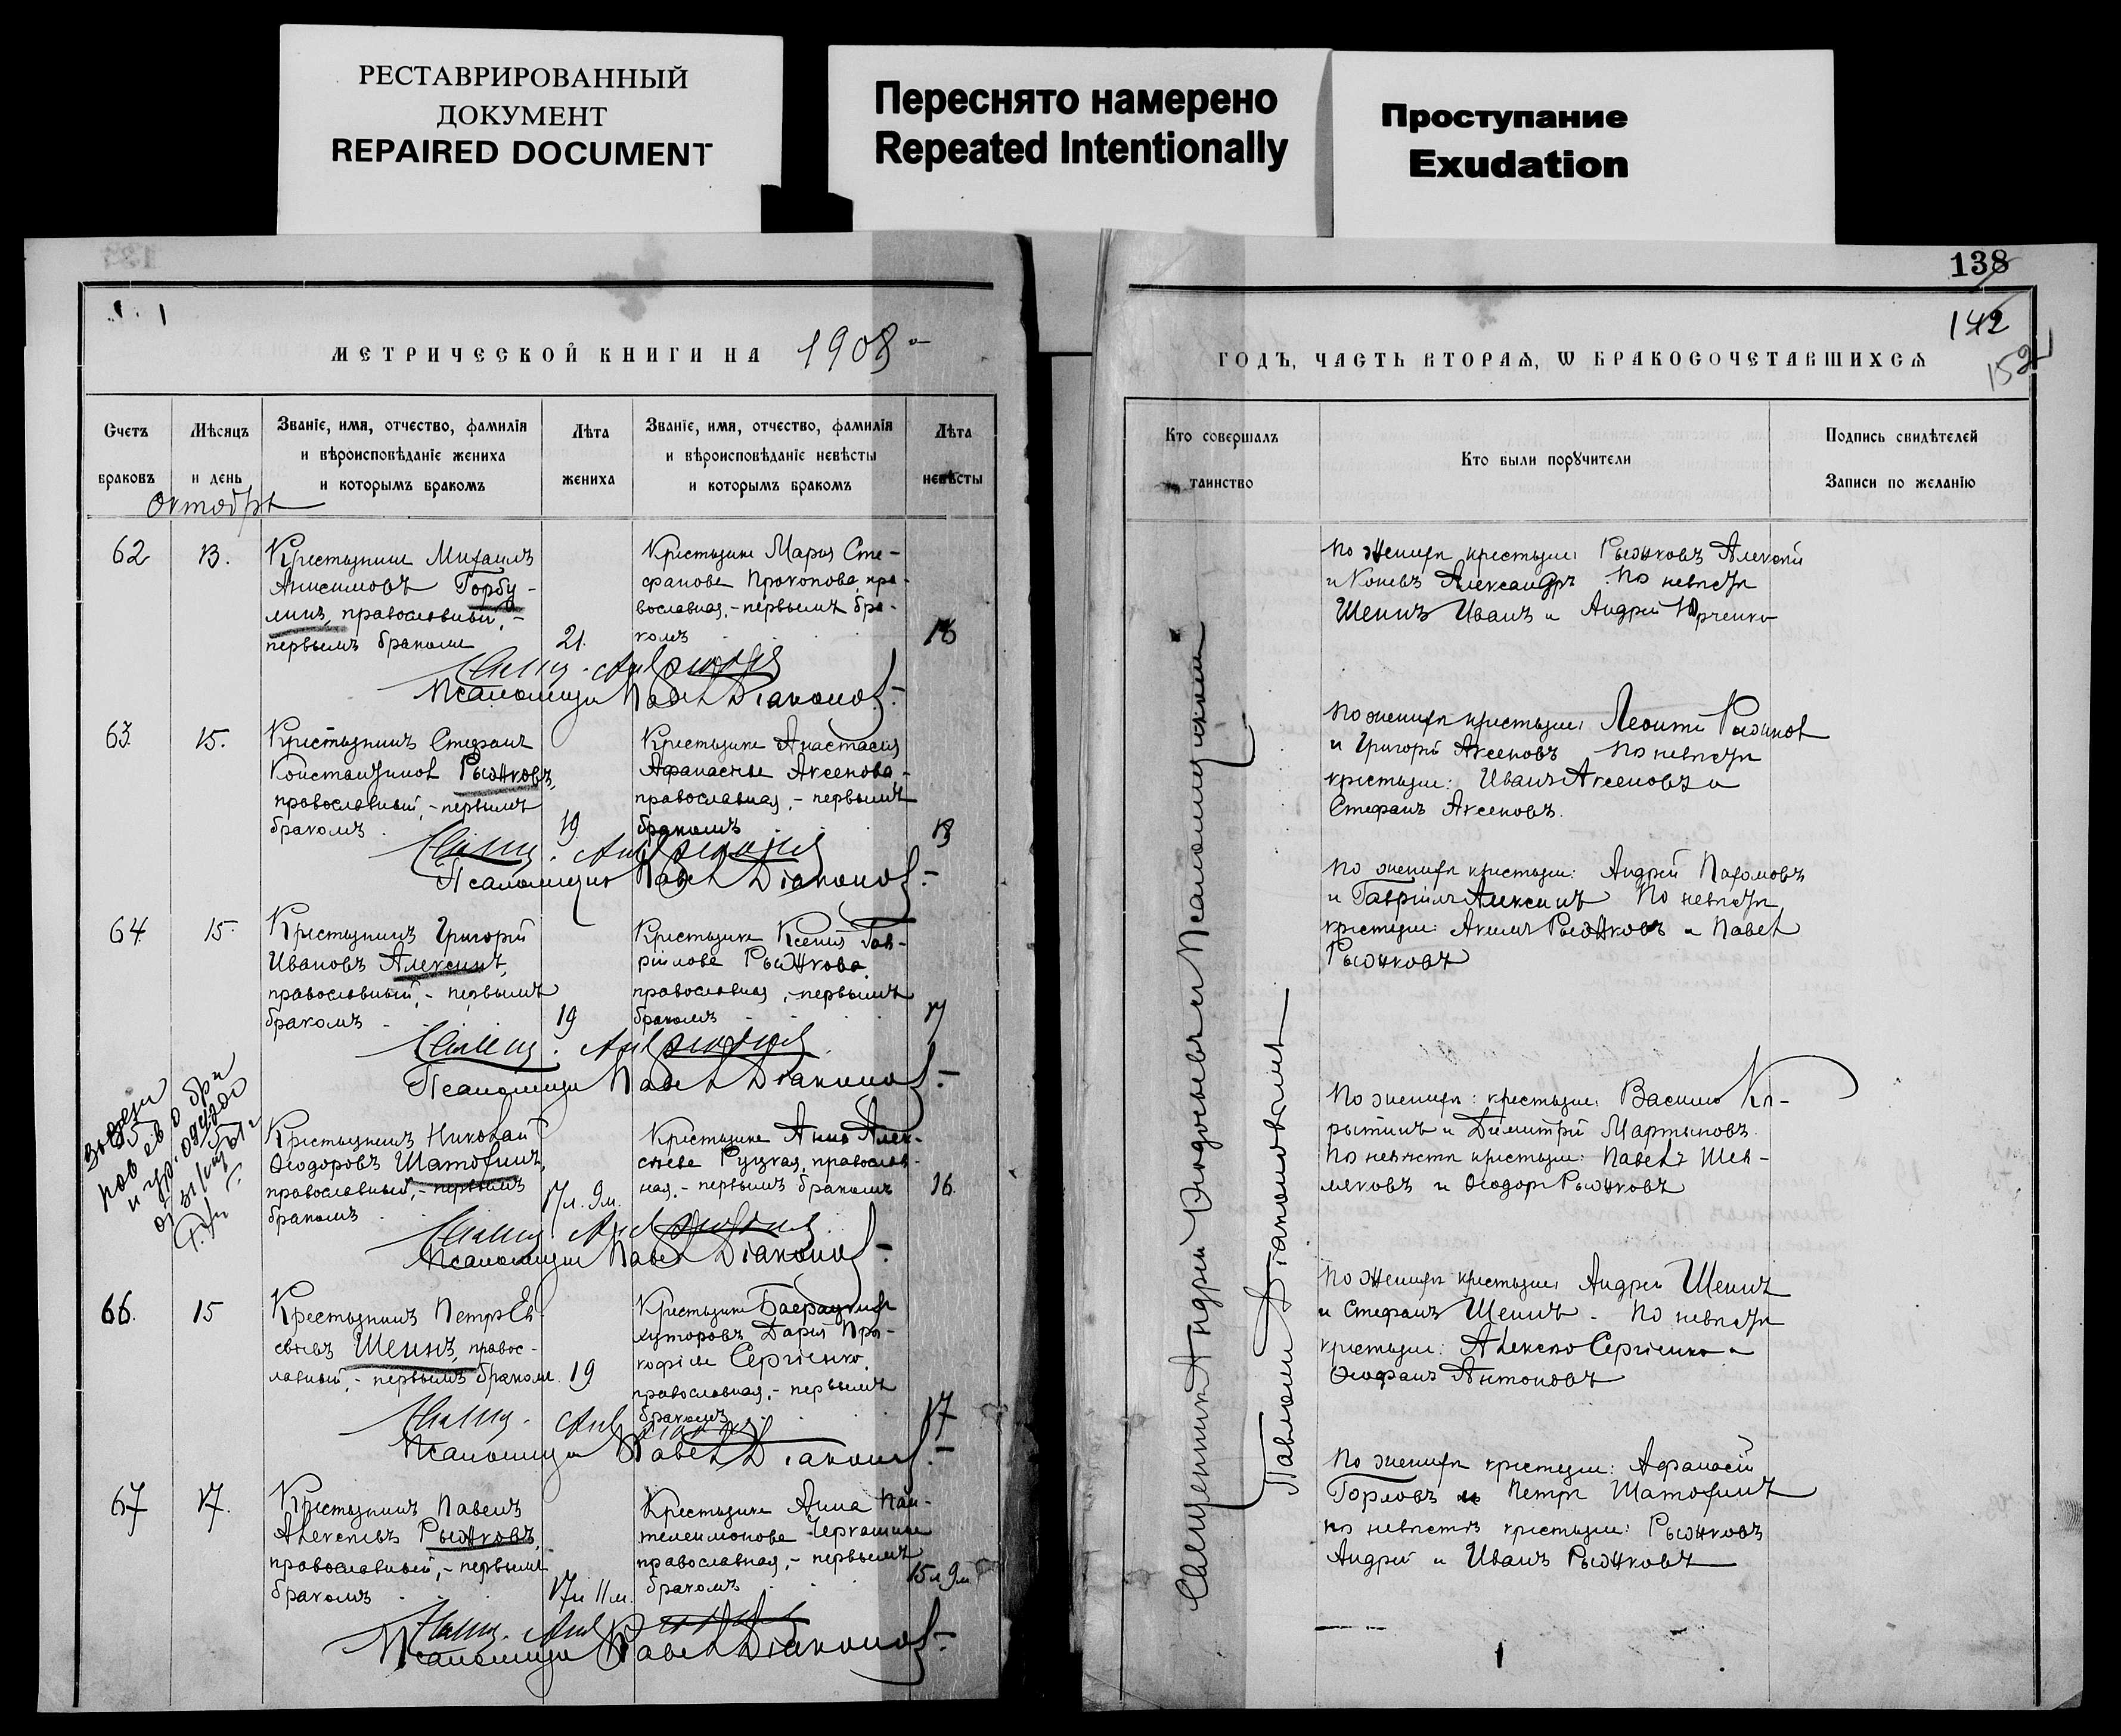 РЕСТАВРИРОВАННЫЙ
ДОКУМЕНТ
REPAIRED DOCUMENT
Переснято намерено
Repeated Intentionally
Проступание
Exudation
МЕТРИЧЕСКОЙ КНИГИ НА 1908
Счетъ браковъ
Мѣсяцъ и день
Званіе, имя, отчество, фамилія
и вѣроисповѣданіе жениха
и которымъ бракомъ
Лѣта жениха
Званіе, имя, отчество, фамилія
и вѣроисповѣданіе невѣсты
и которымъ бракомъ
Лѣта невѣсты
Октябрь
62
13.
Крестьянинъ Михаилъ
Анисимовъ Горбу-
линъ, православный, -
первымъ бракомъ
21.
Крестьянка Марія Сте-
фанова Прокопова, пра-
вославная, - первымъ бра-
комъ
Псаломщикъ Павелъ Діаконовъ.
63.
15.
Крестьянинъ Стефанъ
Константиновъ Рыжковъ,
православный, - первымъ
бракомъ
19
Крестьянка Анастасія
Афанасьева Аксенова
православная, - первымъ
бракомъ
18
Псаломщикъ Павелъ Діаконовъ.
64.
15.
Крестьянинъ Григорій
Ивановъ Алексинъ,
православный, - первымъ
бракомъ
19
Крестьянка Ксенія Гав-
рiилова Рыжкова,
православная, - первымъ
бракомъ
17
Псаломщикъ Павелъ Діаконовъ.
Крестьянинъ Николай
Ѳеодоровъ Шатохинъ,
православный, - первымъ
бракомъ
17 л. 9 м.
Крестьянка Анна Алек-
сѣева Руцкая, православ-
ная, - первымъ бракомъ
16.
Псаломщикъ Павелъ Діаконовъ.
66.
15
Крестьянинъ Петръ Ев-
сѣевъ Шеинъ, правос-
лавный, - первымъ бракомъ
19
Крестьянка
хуторовъ Дарія Про-
кофіева Сергіенко,
православная, - первымъ
бракомъ
17
Псаломщикъ Павелъ Діаконовъ.
67
17.
Крестьянинъ Павелъ
Алексѣевъ Рыжковъ,
православный, - первымъ
бракомъ
17 л. 11 м.
Крестьянка Анна Пан-
телеимонова Черкашина
православная, - первымъ
бракомъ
15 л 9 м
Псаломщикъ Павелъ Діаконовъ.
138
142
152
ГОДЪ, ЧАСТЬ ВТОРАЯ, Ѡ БРАКОСОЧЕТАВШИХСЯ
Кто совершалъ таинство
Кто были поручители
Подпись свидѣтелей
Записи по желанію
Священникъ Андрей и Псаломщикомъ
Павломъ Діаконовымъ
По женихѣ крестьяне: Рыжковъ Алексѣй
и Коневъ Александръ. По невѣстѣ
Шеинъ Иванъ и Андрей Юрченко
По женихѣ крестьяне: Леонтій Рыжковъ
и Григорій Аксеновъ По невѣстѣ
крестьяне: Иванъ Аксеновъ и
Стефанъ Аксеновъ.
По женихѣ крестьяне: Андрей Пахомовъ
и Гавріилъ Алексинъ По невѣстѣ
крестьяне: Акимъ Рыжковъ и Павелъ
Рыжковъ
По женихѣ: крестьяне: Василій Ко-
рытинъ и Димитрій Мартыновъ.
По невѣстѣ крестьяне: Павелъ Шев-
ляковъ и Ѳеодоръ Рыжковъ
По женихѣ крестьяне: Андрей Шеинъ
и Стефанъ Шеинъ. По невѣстѣ
крестьяне: Алексѣй Сергіенко и
Ѳеофанъ Антоновъ
По женихѣ крестьяне: Афанасій
Горловъ и Петръ Шатохинъ
по невѣстѣ крестьяне: Рыжковъ
Андрей и Иванъ Рыжковъ